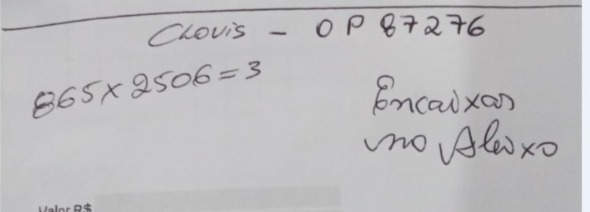 Clovis - OP 87276
865 x 2506 = 3
Encaixar
no Aleixo
Valor R$